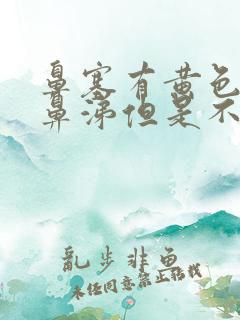 鼻塞有黄色
鼻涕但是不
乱步非鱼
未经同意禁止转载